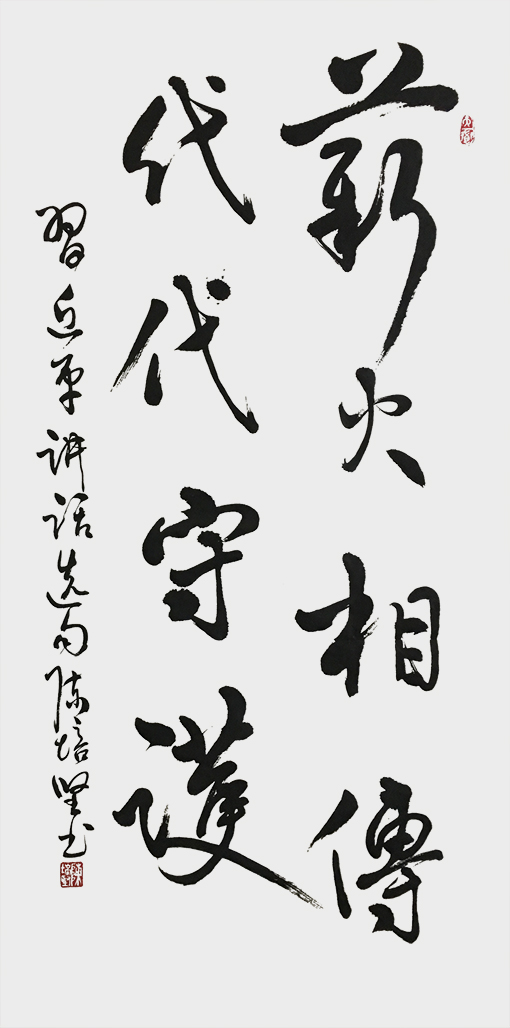 薪火相傳
代代守護
習近平讲话选句陈培坚书